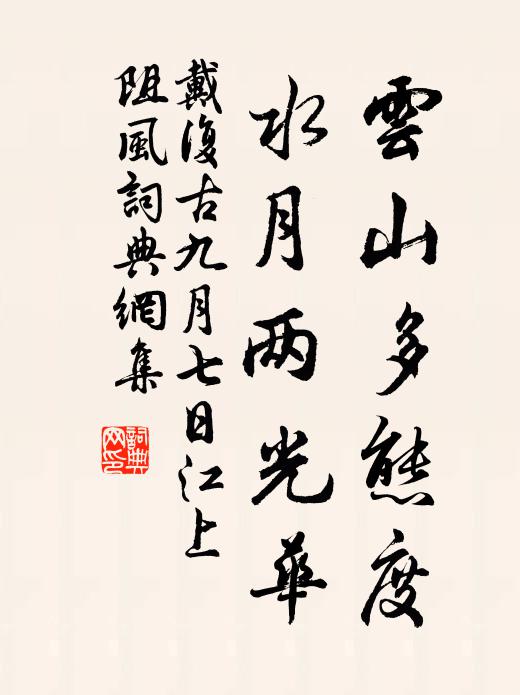 雲山多態度
水月两光華
戴復古九月七日江上
阻風詞典網集
詞典
网印